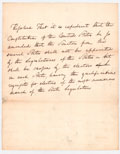 Resolved That it is expedient that the
Constitution of the United States be so
amended that the Senators from the
several States shall not be appointed
by the Legislatures of the States — but
shall be chosen by the electors
in each State having the qualifications
requisite for electors of the most numerous
branch of the State Legislature